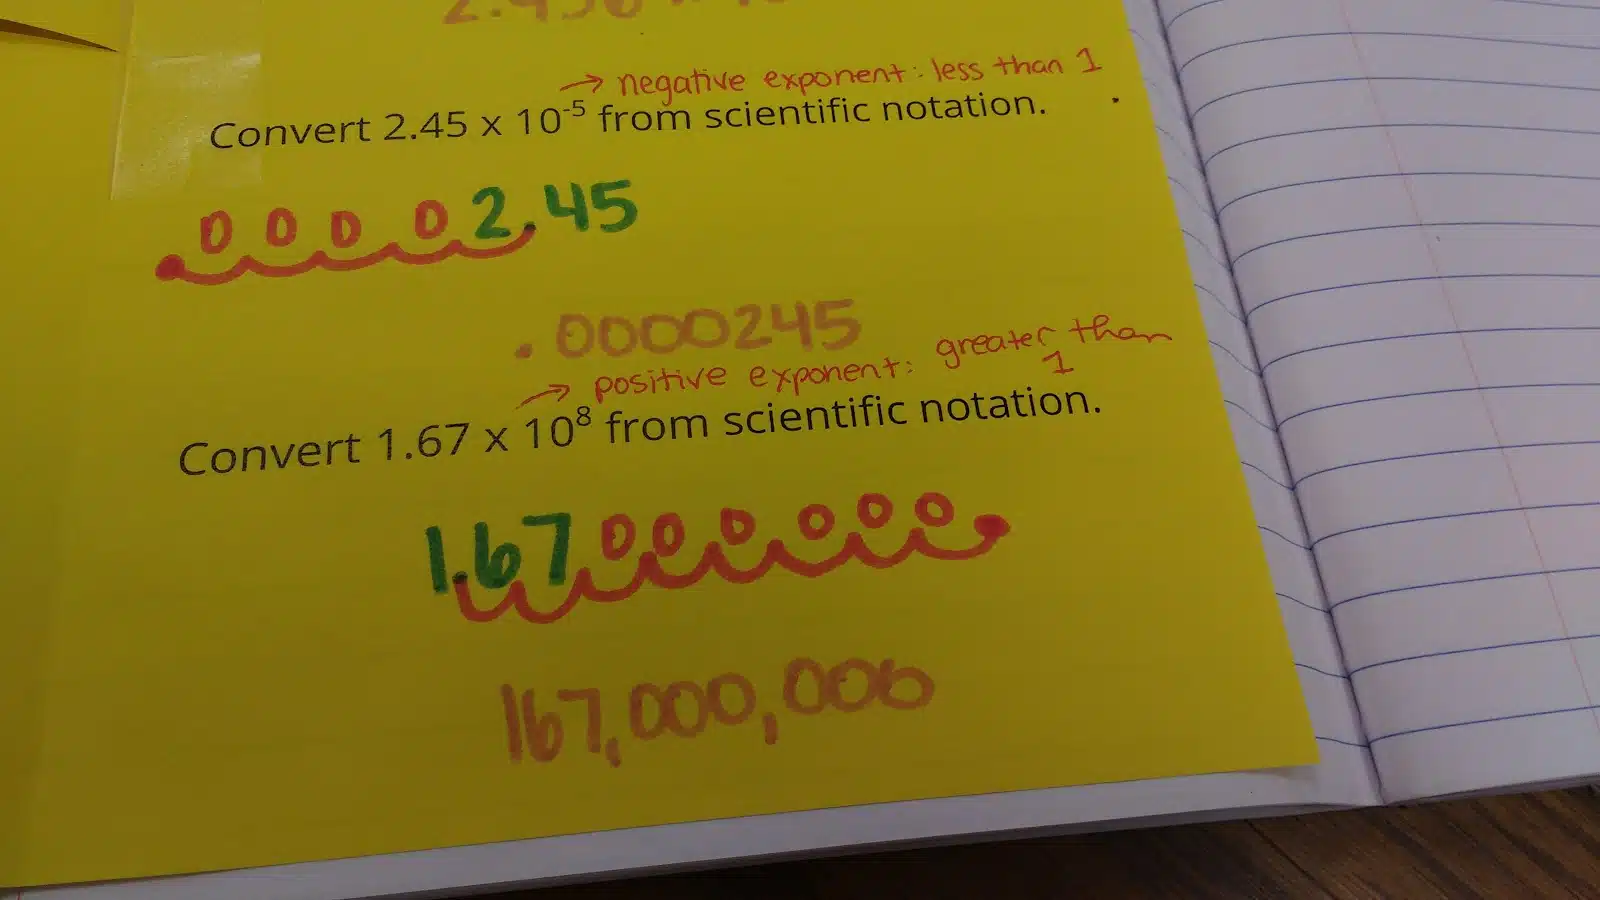 → negative exponent: less than 1
Convert 2.45 x 10⁻⁵ from scientific notation.
00002.45
.0000245
→ positive exponent: greater than
1
Convert 1.67 x 10⁸ from scientific notation.
1.67000000
167,000,000